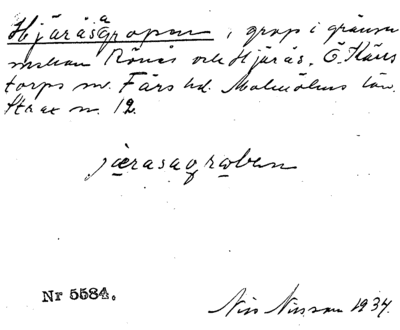 Hjäråsagropen, grop i gränsen
mellan Rönås och Hjärås, Ö. Kärs
torps sn. Färs hd. Malmöhus län.
Strax n. 12.
järasagroben
Nr 5584.
Nils Nilsson 1934.